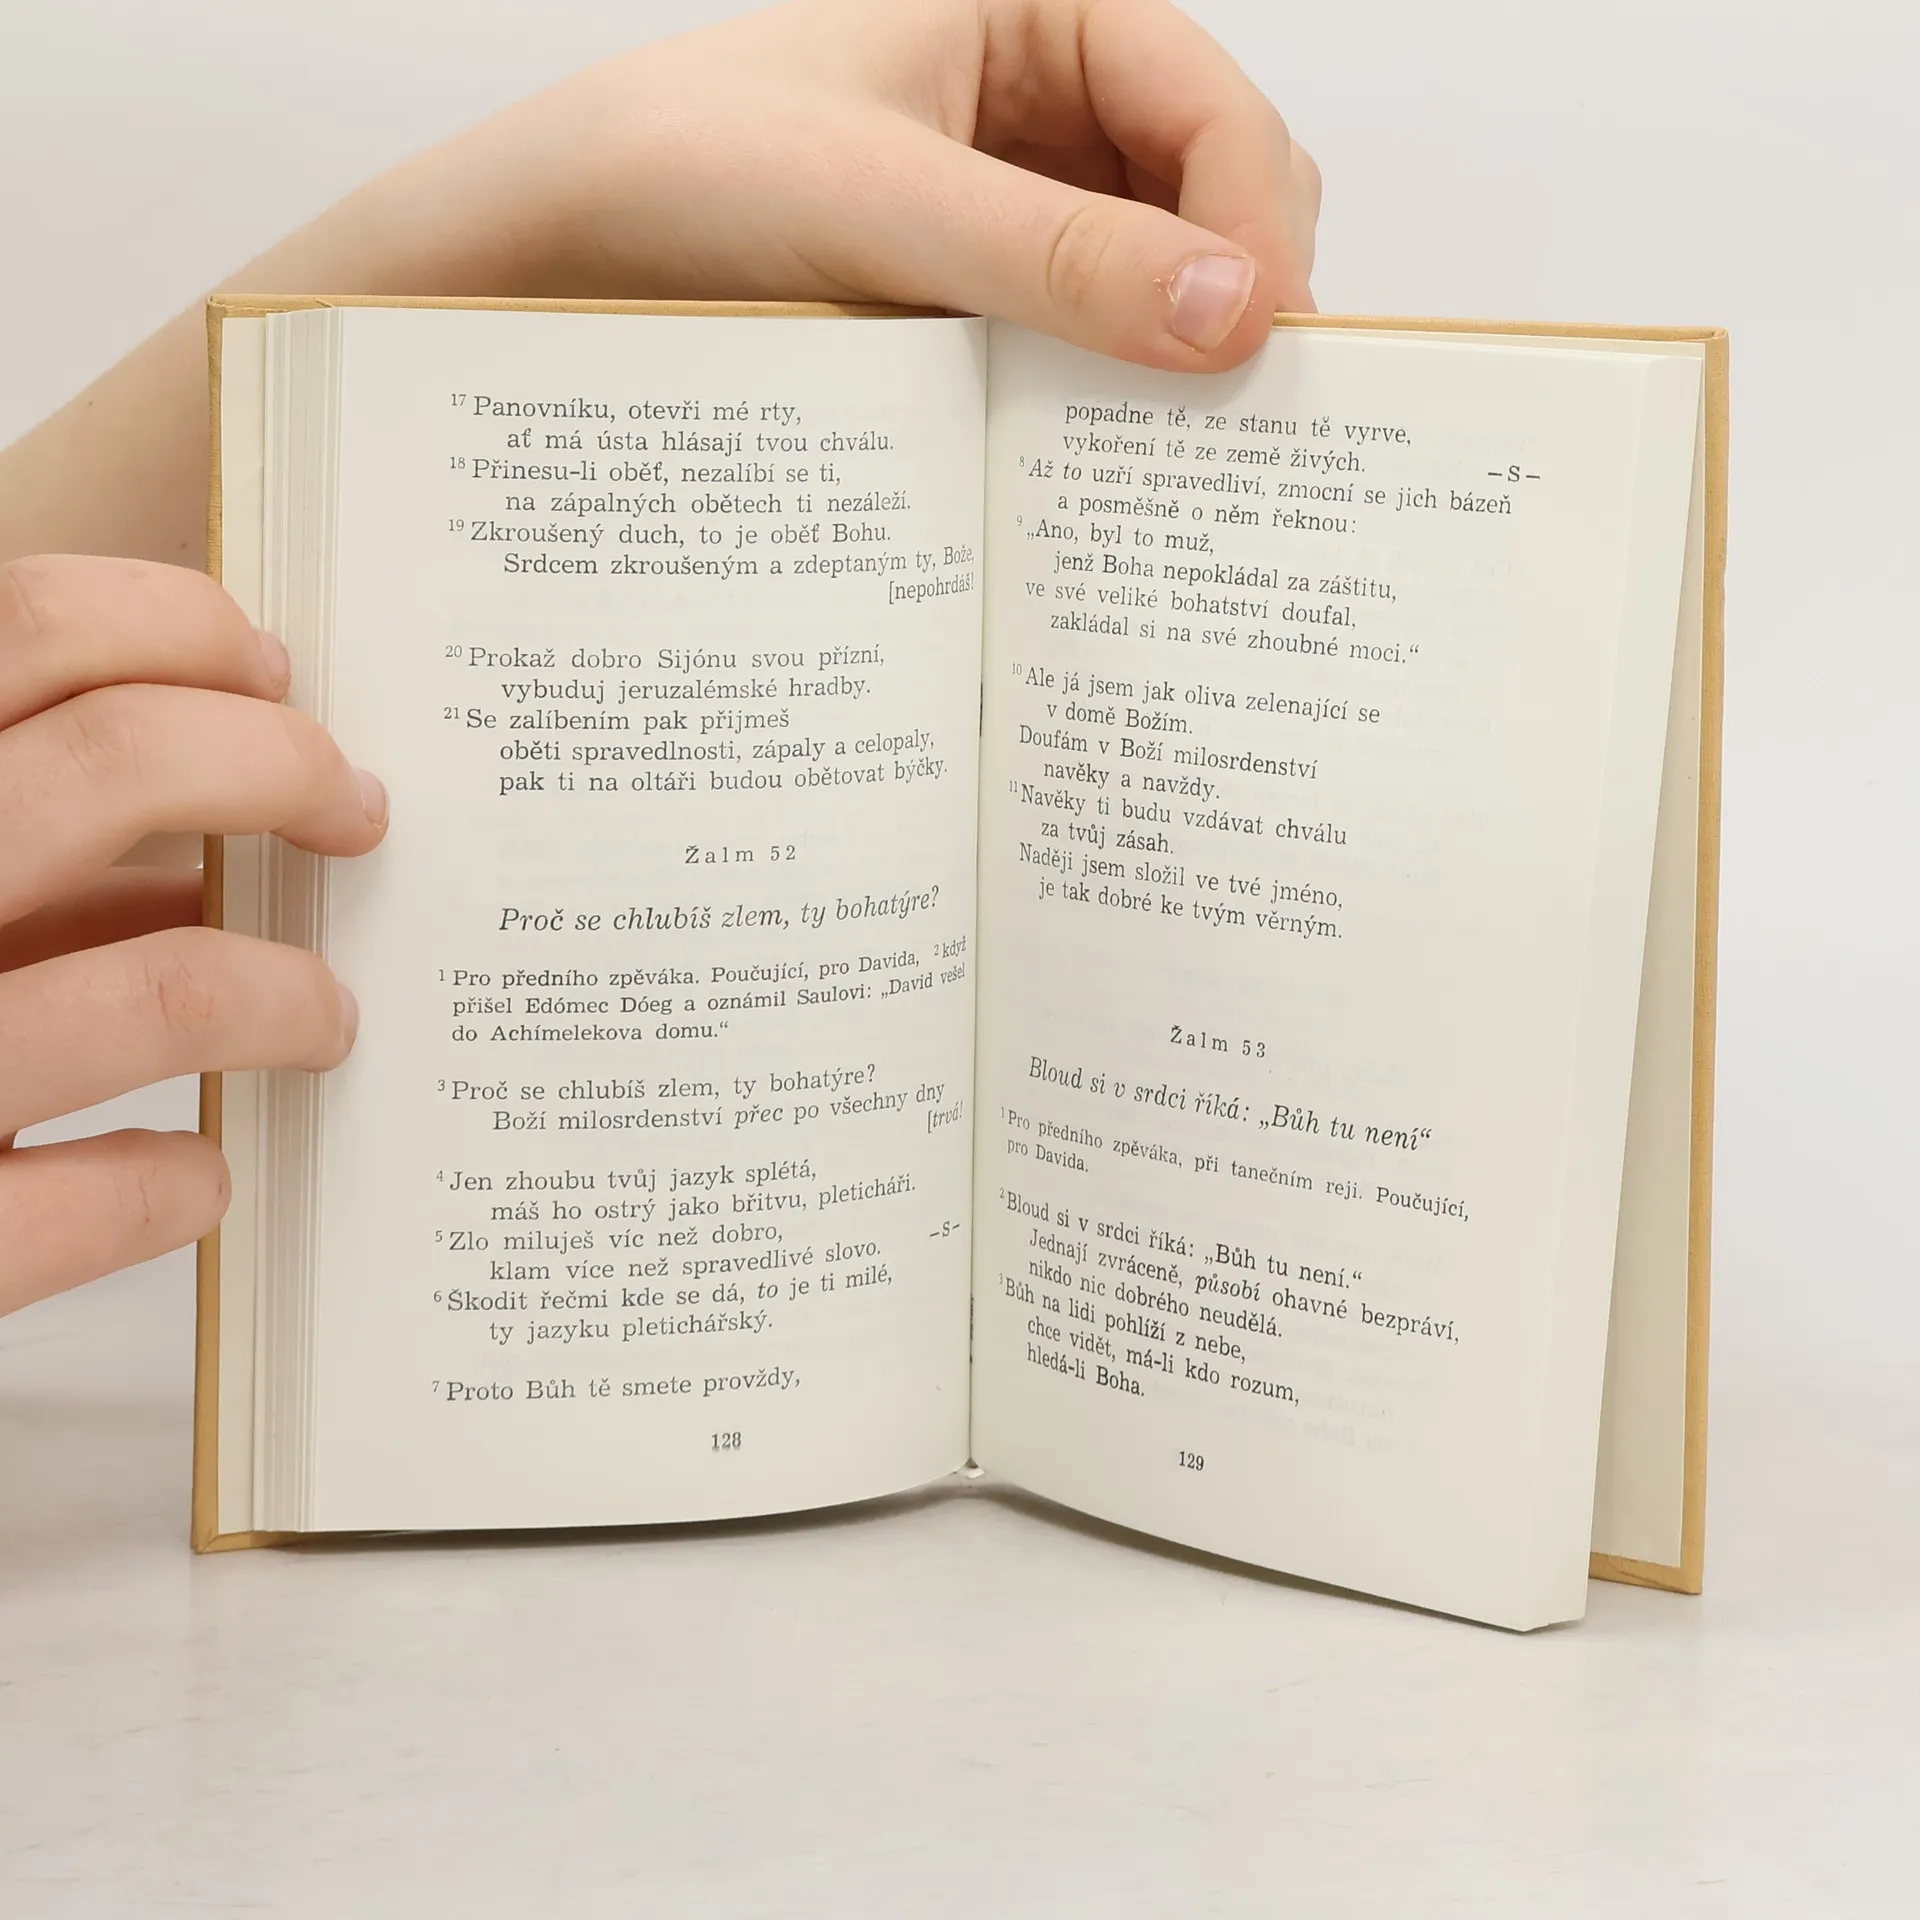 17 Panovníku, otevři mé rty,
ať má ústa hlásají tvou chválu.
18 Přinesu-li oběť, nezalíbí se ti,
na zápalných obětech ti nezáleží.
19 Zkroušený duch, to je oběť Bohu.
Srdcem zkroušeným a zdeptaným ty, Bože,
[nepohrdáš!
20 Prokaž dobro Sijónu svou přízní,
vybuduj jeruzalémské hradby.
21 Se zalíbením pak přijmeš
oběti spravedlnosti, zápaly a celopaly,
pak ti na oltáři budou obětovat býčky.
Žalm 52
Proč se chlubíš zlem, ty bohatýre?
1 Pro předního zpěváka. Poučující, pro Davida, 2 když
přišel Edómec Dóeg a oznámil Saulovi: „David vešel
do Achímelekova domu.“
3 Proč se chlubíš zlem, ty bohatýre?
Boží milosrdenství přec po všechny dny
[trvá!
4 Jen zhoubu tvůj jazyk splétá,
máš ho ostrý jako břitvu, pleticháři.
5 Zlo miluješ víc než dobro,
klam více než spravedlivé slovo. –S–
6 Škodit řečmi kde se dá, to je ti milé,
ty jazyku pletichářský.
7 Proto Bůh tě smete provždy,
128
popadne tě, ze stanu tě vyrve,
vykoření tě ze země živých. –S–
8 Až to uzří spravedliví, zmocní se jich bázeň
a posměšně o něm řeknou:
9 „Ano, byl to muž,
jenž Boha nepokládal za záštitu,
ve své veliké bohatství doufal,
zakládal si na své zhoubné moci.“
10 Ale já jsem jak oliva zelenající se
v domě Božím.
Doufám v Boží milosrdenství
navěky a navždy.
11 Navěky ti budu vzdávat chválu
za tvůj zásah.
Naději jsem složil ve tvé jméno,
je tak dobré ke tvým věrným.
Žalm 53
Bloud si v srdci říká: „Bůh tu není“
1 Pro předního zpěváka, při tanečním reji. Poučující,
pro Davida.
2 Bloud si v srdci říká: „Bůh tu není.“
Jednají zvráceně, působí ohavné bezpráví,
nikdo nic dobrého neudělá.
3 Bůh na lidi pohlíží z nebe,
chce vidět, má-li kdo rozum,
hledá-li Boha.
129